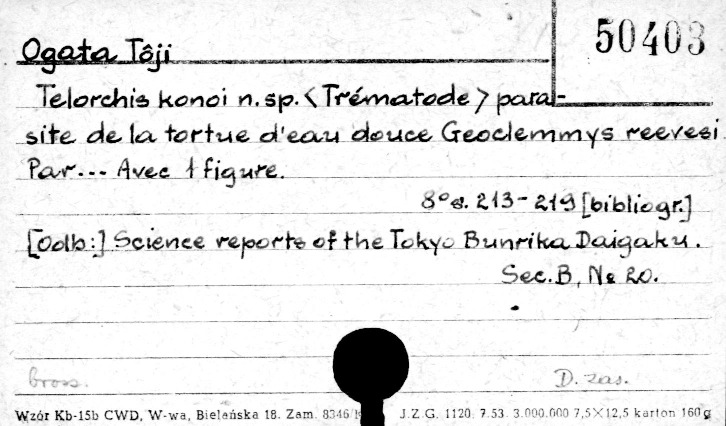 50403
Ogata Tôji
Telorchis konoi n. sp. <Trématode> para-
site de la tortue d'eau douce Geoclemmys reevesi
Par... Avec 1 figure.
8° s. 213-219 [bibliogr.]
[Odb:] Science reports of the Tokyo Bunrika Daigaku.
Sec. B, № 20.
brosz. D. zas.
Wzór Kb-15b CWD, W-wa, Bielańska 18. Zam. 8346 J.Z.G. 1120. 7.53. 3.000.000 7,5×12,5 karton 160 g